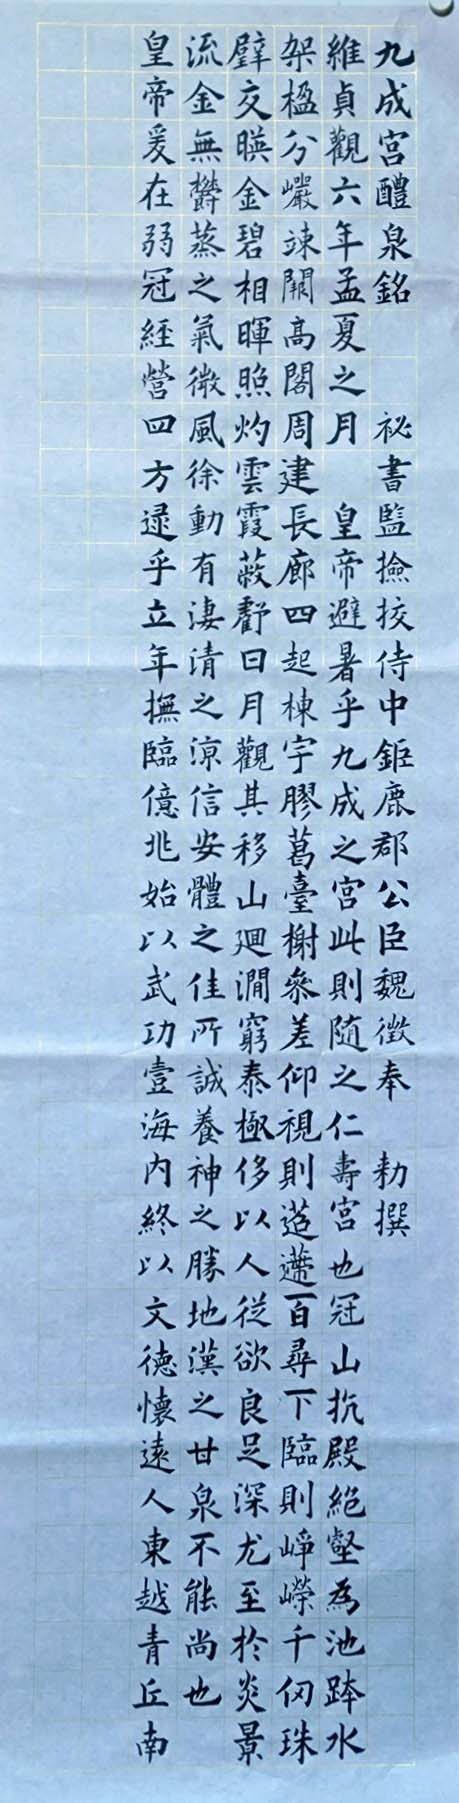 九成宮醴泉銘 祕書監撿挍侍中鉅鹿郡公臣魏徵奉 勅撰
維貞觀六年孟夏之月 皇帝避暑乎九成之宮此則隨之仁壽宮也冠山抗殿絕壑為池跨水
架楹分巖竦闕高閣周建長廊四起棟宇膠葛臺榭參差仰視則迢遰百尋下臨則崢嶸千仞珠
璧交暎金碧相暉照灼雲霞蔽虧日月觀其移山迴澗窮泰極侈以人從欲良足深尤至於炎景
流金無鬱蒸之氣微風徐動有淒清之涼信安體之佳所誠養神之勝地漢之甘泉不能尚也
皇帝爰在弱冠經營四方逮乎立年撫臨億兆始以武功壹海內終以文德懷遠人東越青丘南